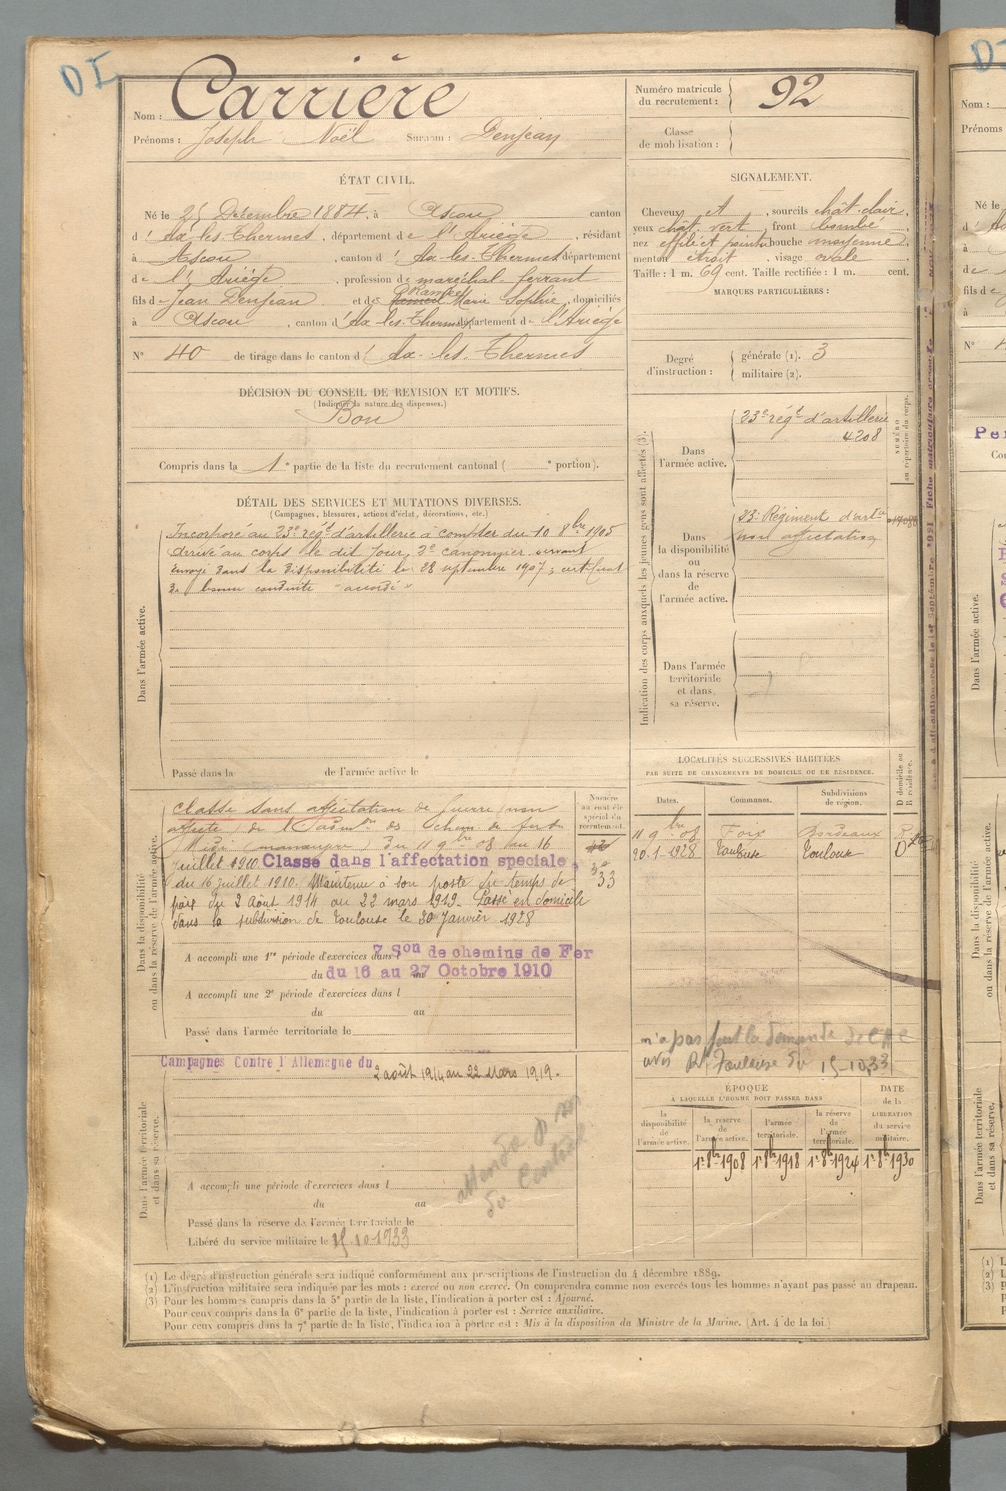 DI
Nom : Carrière
Prénoms : Joseph Noël Surnom : Denjean
Numéro matricule du recrutement : 92
Classe de mobilisation :
ÉTAT CIVIL.
Né le 25 Décembre 1884, à Ascou canton
d'Ax-les-Thermes, département de l'Ariège, résidant
à Ascou, canton d'Ax-les-Thermes département
de l'Ariège, profession de maréchal-ferrant
fils de Jean Denjean et de Marie Sophie, domiciliés
à Ascou, canton d'Ax-les-Thermes département de l'Ariège
N° 40 de tirage dans le canton d'Ax-les-Thermes
SIGNALEMENT.
Cheveux et, sourcils chât-clair,
yeux chât. vert, front bombé
nez effilé et pointu bouche moyenne,
menton étroit, visage ovale
Taille : 1 m. 69 cent. Taille rectifiée : 1 m. cent.
MARQUES PARTICULIÈRES :
Degré d'instruction : générale (1). 3
militaire (2).
DÉCISION DU CONSEIL DE REVISION ET MOTIFS.
(Indiquer la nature des dispenses.)
Bon
Compris dans la 1e partie de la liste du recrutement cantonal ( e portion).
DÉTAIL DES SERVICES ET MUTATIONS DIVERSES.
(Campagnes, blessures, actions d'éclat, décorations, etc.)
Dans l'armée active.
Incorporé au 23e régt d'artillerie à compter du 10 8bre 1905
Arrivé au corps le dit jour, 2e canonnier servant
Envoyé dans la disponibilité le 28 septembre 1907 ; certificat
de bonne conduite "accordé"
Passé dans la de l'armée active le
Indication des corps auxquels les jeunes gens sont affectés (3).
NUMÉRO au répertoire du corps.
Dans l'armée active.
23e régt d'artillerie
4208
Dans la disponibilité ou dans la réserve de l'armée active.
23e Régiment d'artie
non affectation
Dans l'armée territoriale et dans sa réserve.
Dans la disponibilité ou dans la réserve de l'armée active.
Numéro au contrôle spécial du recrutement.
Classé sans affectation de guerre (non
affecté) de l'Admon des chem. de fer du
Midi (manœuvre) du 11 9bre 08 au 16
juillet 1910. Classé dans l'affectation spéciale,
du 16 juillet 1910. Maintenu à son poste du temps de
paix du 2 Août 1914 au 22 mars 1919. Passé en domicile
dans la subdivision de Toulouse le 30 Janvier 1928
33
A accompli une 1re période d'exercices dans 7 Son de chemins de Fer
du du 16 au 27 Octobre 1910
A accompli une 2e période d'exercices dans l
du au
Passé dans l'armée territoriale le
LOCALITÉS SUCCESSIVES HABITÉES
PAR SUITE DE CHANGEMENTS DE DOMICILE OU DE RÉSIDENCE.
D domicile ou R résidence.
Dates. Communes. Subdivisions de région.
11 9bre 08 Foix Bordeaux R
20-1-1928 Toulouse Toulouse D
n'a pas fait la demande de C A C
avis Rt Toulouse du 15-10-33
Dans l'armée territoriale et dans sa réserve.
Campagnes Contre l'Allemagne du
2 août 1914 au 22 Mars 1919.
A accompli une période d'exercices dans l
du au
Passé dans la réserve de l'armée territoriale le
Libéré du service militaire le 15.10.1933
ÉPOQUE
A LAQUELLE L'HOMME DOIT PASSER DANS
la disponibilité de l'armée active.
la réserve de l'armée active.
l'armée territoriale.
la réserve de l'armée territoriale.
DATE de la LIBÉRATION du service militaire.
1er 8bre 1908 1er 8bre 1918 1er 8bre 1924 1er 8bre 1930
(1) Le degré d'instruction générale sera indiqué conformément aux prescriptions de l'instruction du 4 décembre 1889.
(2) L'instruction militaire sera indiquée par les mots : exercé ou non exercé. On comprendra comme non exercés tous les hommes n'ayant pas passé au drapeau.
(3) Pour les hommes compris dans la 5e partie de la liste, l'indication à porter est : Ajourné.
Pour ceux compris dans la 6e partie de la liste, l'indication à porter est : Service auxiliaire.
Pour ceux compris dans la 7e partie de la liste, l'indication à porter est : Mis à la disposition du Ministre de la Marine. (Art. 4 de la loi.)